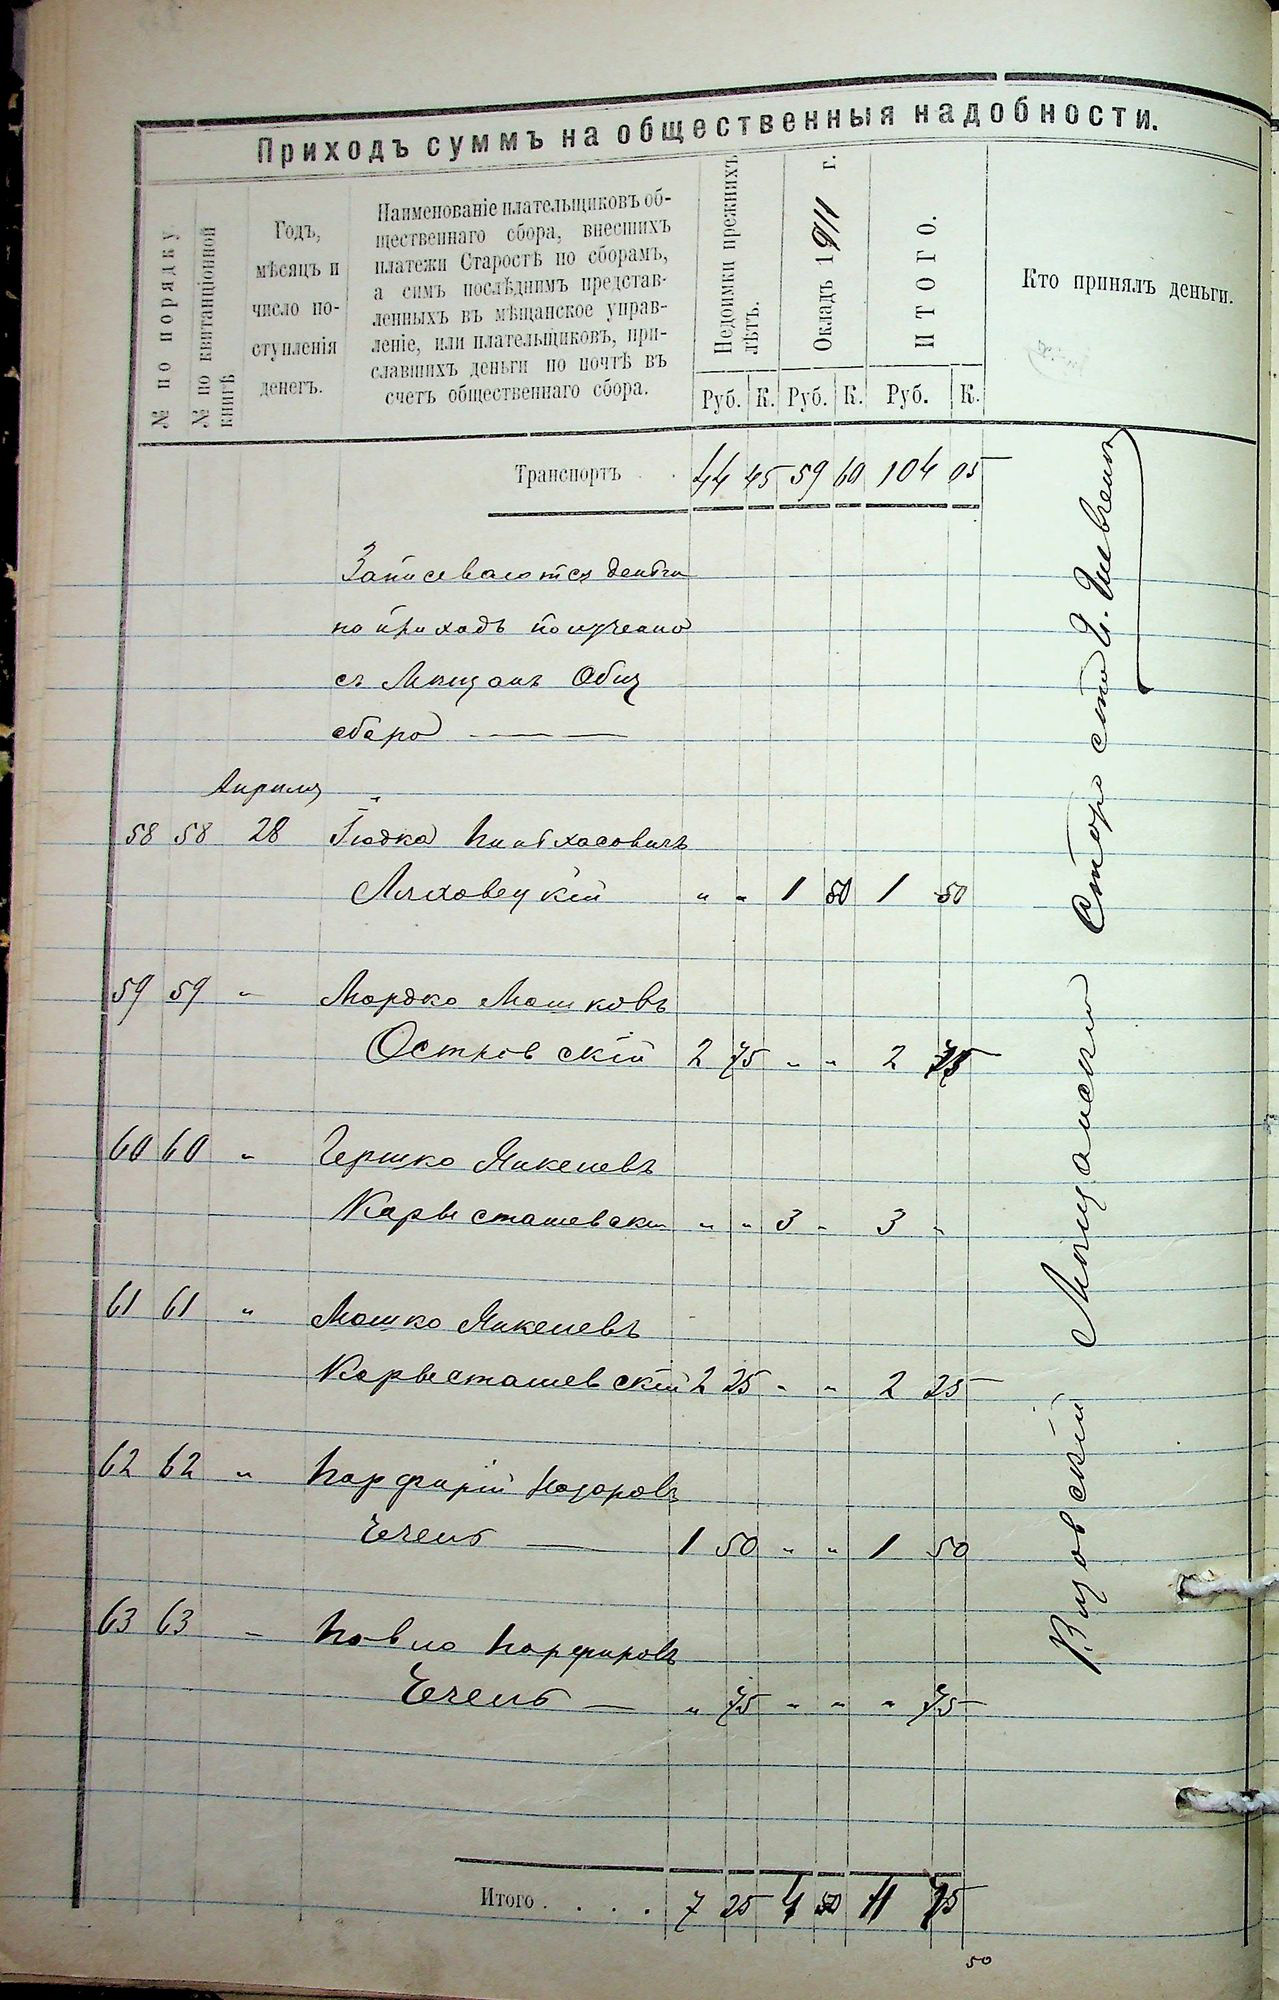 Приходъ суммъ на общественныя надобности.
№ по порядку.
№ по квитанціонной
книгѣ
Годъ,
мѣсяцъ и
число по-
ступленія
денегъ.
Наименованіе плательщиковъ об-
щественнаго сбора, внесшихъ
платежи Старостѣ по сборамъ,
а симъ послѣднимъ представ-
ленныхъ въ мѣщанское управ-
леніе, или плательщиковъ, при-
славшихъ деньги по почтѣ въ
счетъ общественнаго сбора.
Недоимки прежнихъ
лѣтъ.
Окладъ 1911 г.
ИТОГО.
Кто принялъ деньги.
Руб. К. Руб. К. Руб. К.
Транспортъ . . 44 45 59 60 104 05
Записеваются деньги
на приходъ получено
съ Мѣщанъ Общ
сбора
Апрѣля
58 58 28 Іюдка Пинхасовичъ
Ляховецкій " " 1 50 1 50
59 59 " Мордко Мошковъ
Островскій 2 75 " " 2 75
60 60 " Гершко Янкелевъ
" " 3 " 3 "
61 61 " Мошко Янкелевъ
2 25 " " 2 25
62 62 " Парфирій Назаровъ
Чечель 1 50 " " 1 50
63 63 " Павло Парфировъ
Чечель " 75 " " " 75
Итого . . . . 7 25 4 50 11 75
50
Мѣщанскій Староста